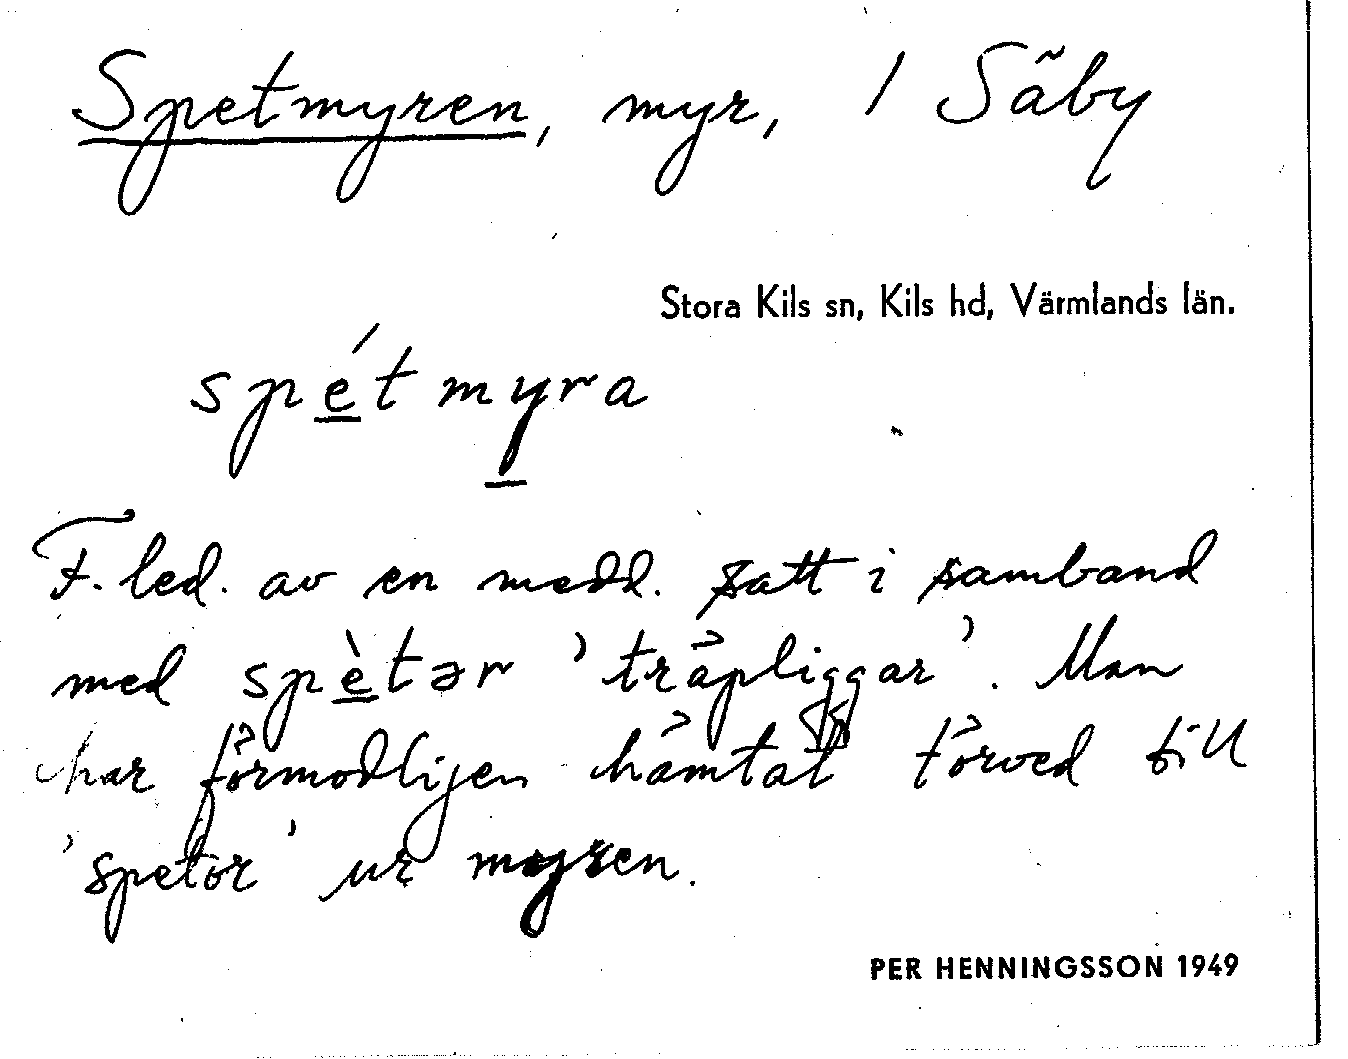 Spetmyren, myr, / Säby
Stora Kils sn, Kils hd, Värmlands län.
spé̲tmy̲ra
F. led. av en medd. satt i samband
med spè̲tər 'träpliggar'. Man
har förmodligen hämtat törved till
'spetor' ur myren.
PER HENNINGSSON 1949